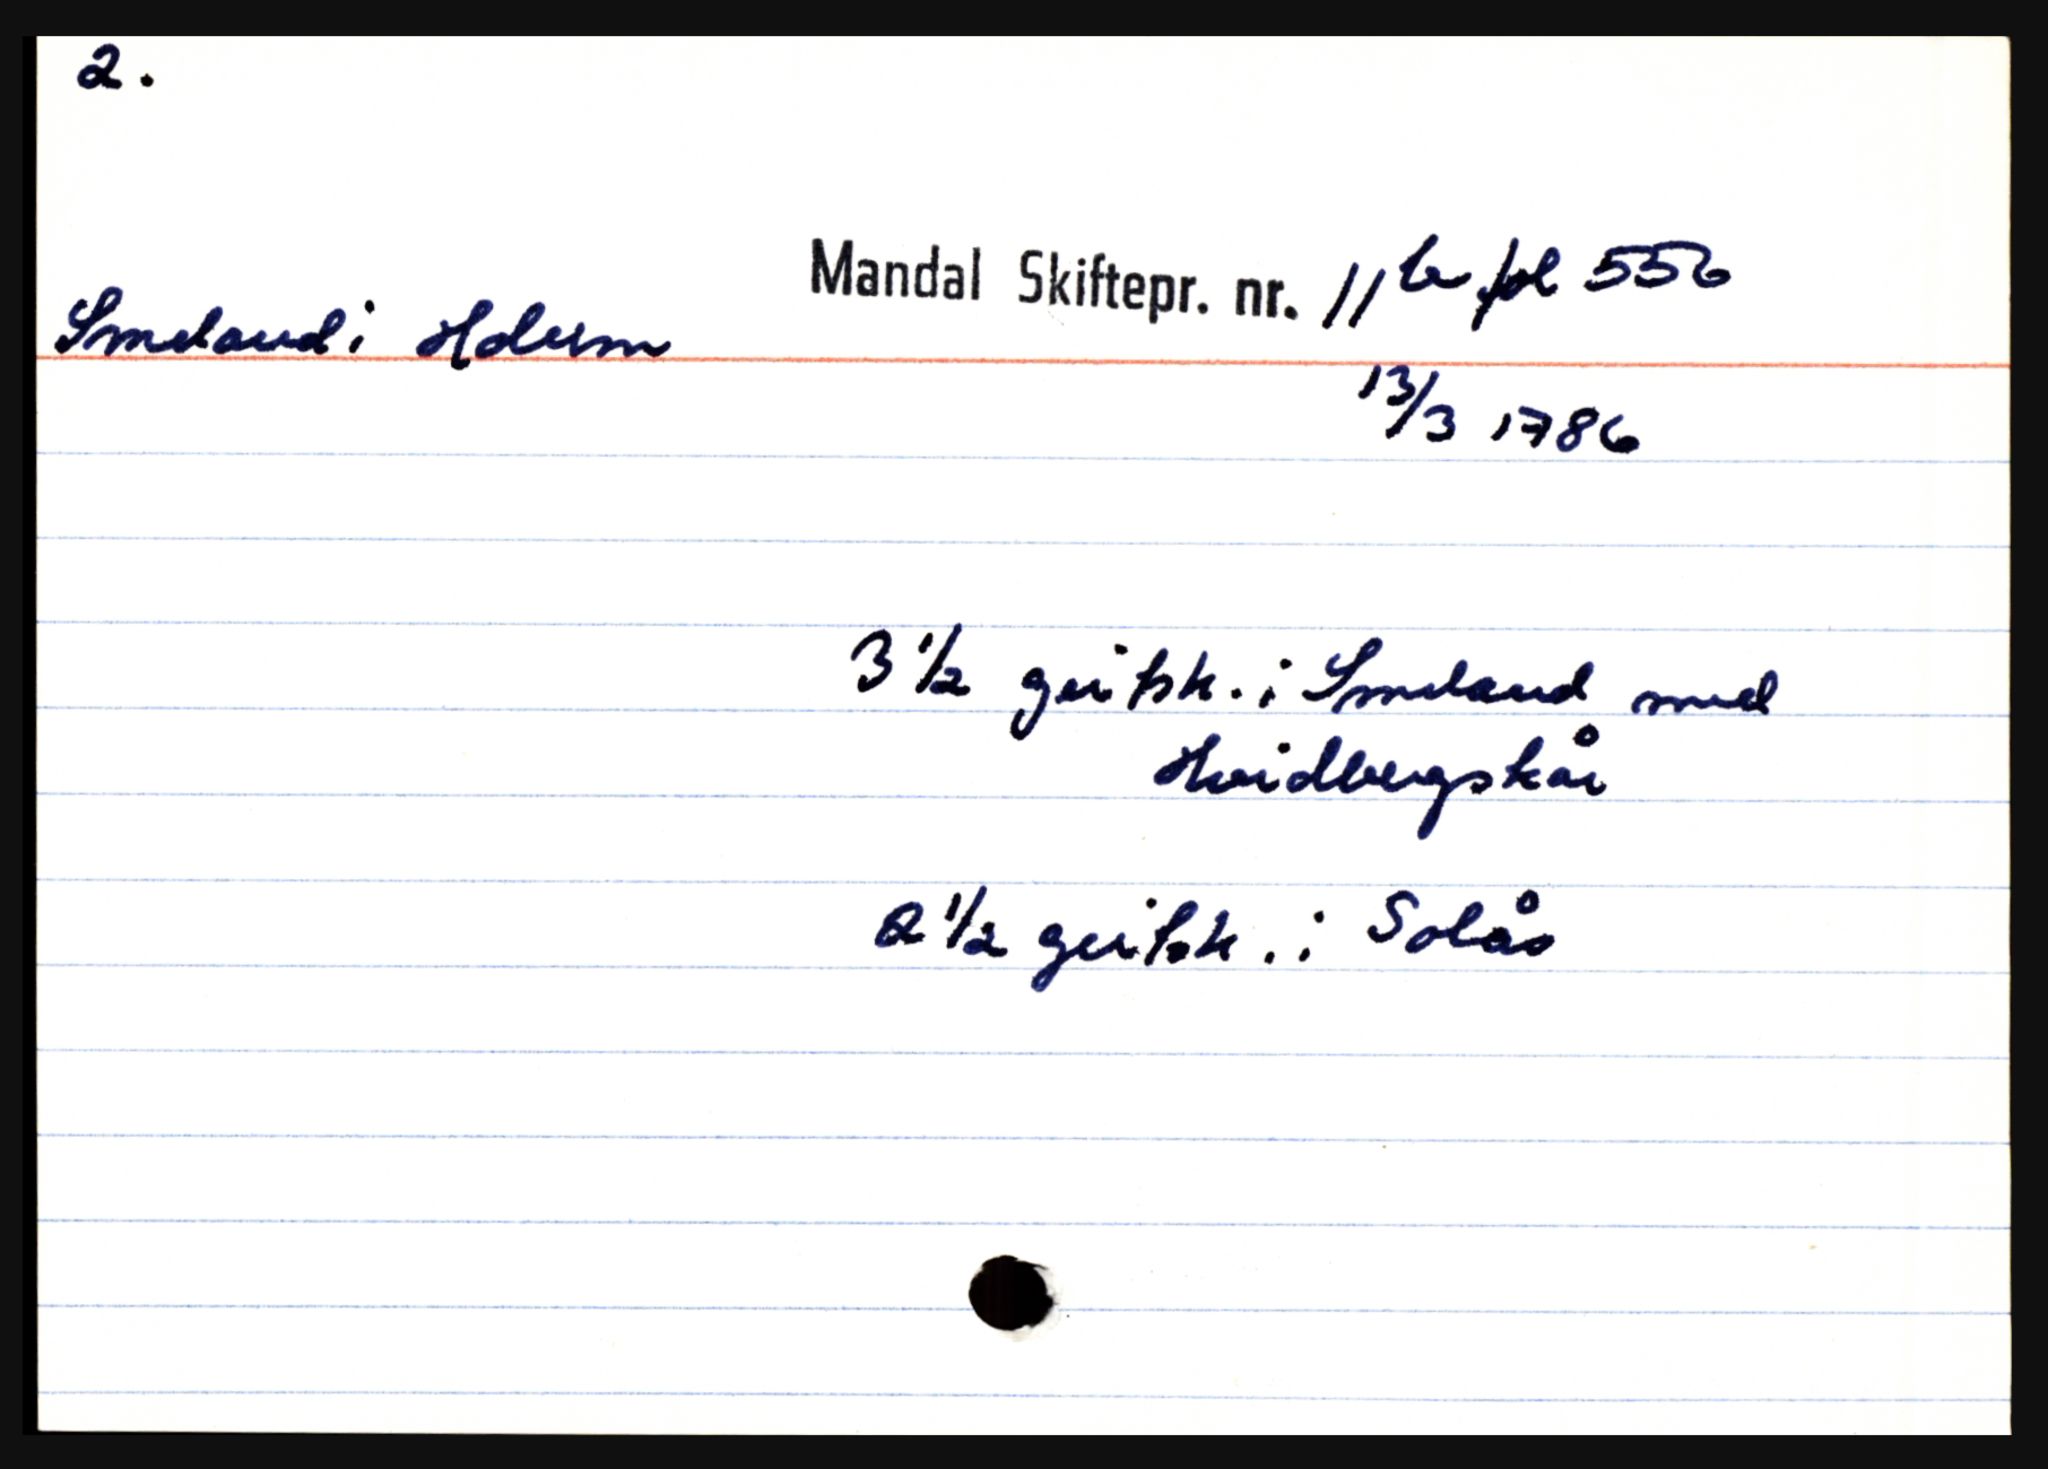 2.
Mandal Skiftepr. nr. 11 b fol 556
Smeland i Holum
13/3 1786
3 1/2 geitsk. i Smeland med
Hvidbergskår
2 1/2 geitsk. i Solås